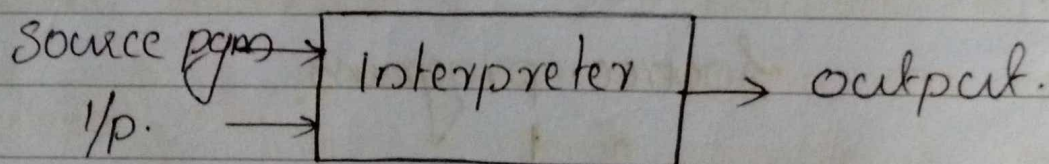 Source pgm
Interpreter
output.
I/p.